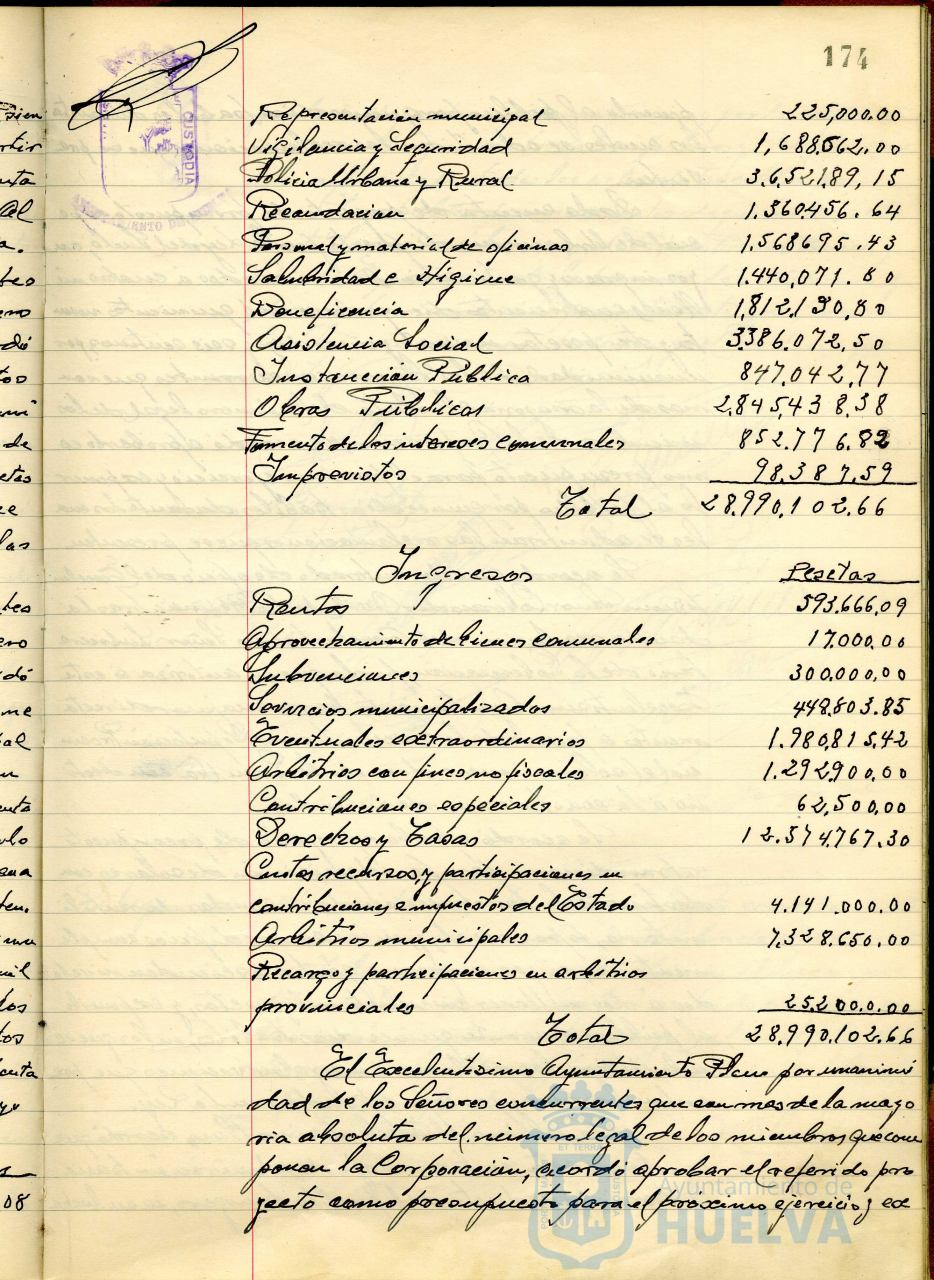 174
Representación municipal 225,000.00
Vigilancia y Seguridad 1,688.562.00
Policia Urbana y Rural 3.6.52189,15
Recaudacion 1.360.456.64
Personal y material de oficinas 1.568695.43
Salubridad e Higiene 1.440,071.80
Beneficencia 1,812,130,80
Asistencia Social 3386.072,50
Instrucción Pública 847.042,77
Obras Públicas 2.845,438.38
Fomento de los intereses comunales 852.776.82
Imprevistos 98.387,59
Total 28.990,102.66
Ingresos Pesetas
Rentas 593.666,09
Aprovechamiento de bienes comunales 17.000.00
Subvenciones 300.000,00
Servicios municipalizados 448.803.85
Eventuales extraordinarios 1.980,815,42
Arbitrios con fines no fiscales 1.292,900,00
Contribuciones especiales 62,500,00
Derechos y Tasas 12.574,767.30
Cuotas recursos, y participaciones en
contribuciones e impuestos del Estado 4.141.000.00
Arbitrios municipales 7,328.650.00
Recargo y participaciones en arbitrios
provinciales 25.200.0.00
Total 28.990.102.66
El Excelentisimo Ayuntamiento Pleno por unanimi
dad de los Señores concurrentes que son mas de la mayo
ria absoluta del número legal de los miembros que com
ponen la Corporación, acordó aprobar el referido pro
yecto como presupuesto para el proximo ejercicio, ex
Ayuntamiento de
HUELVA